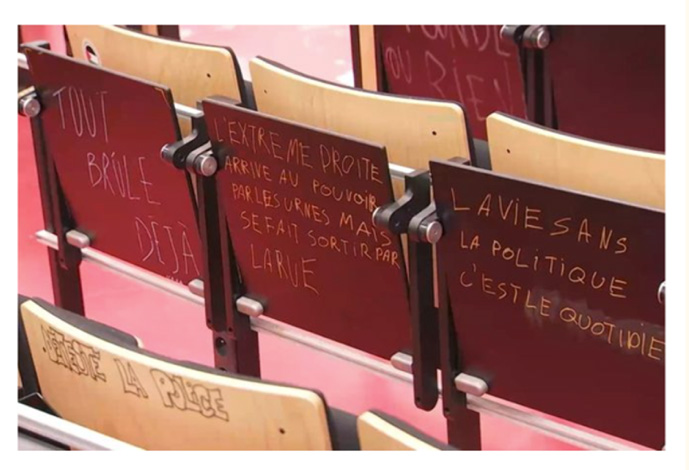 OU BIEN
TOUT
BRÛLE
DÉJÀ
L'EXTREME DROITE
ARRIVE AU POUVOIR
PAR LES URNES MAIS
SE FAIT SORTIR PAR
LA RUE
LA VIE SANS
LA POLITIQUE
C'EST LE QUOTIDIE
LA POLICE